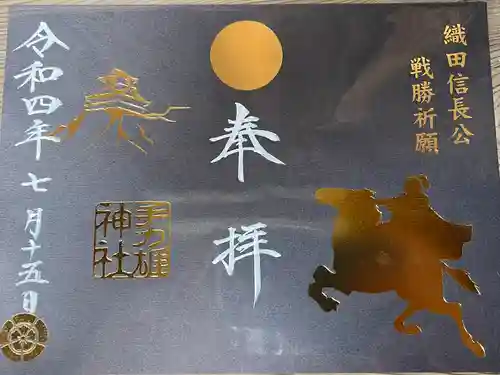 織田信長公
戦勝祈願
奉拝
手力雄
神社
令和四年七月十五日